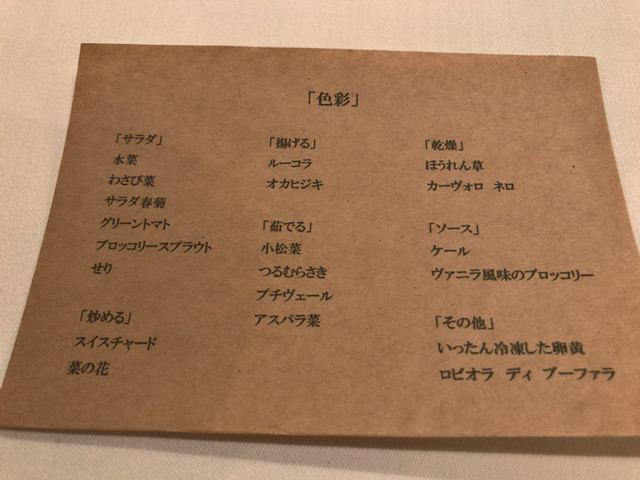 「色彩」
「サラダ」
水菜
わさび菜
サラダ春菊
グリーントマト
ブロッコリースプラウト
せり
「炒める」
スイスチャード
菜の花
「揚げる」
ルーコラ
オカヒジキ
「茹でる」
小松菜
つるむらさき
プチヴェール
アスパラ菜
「乾燥」
ほうれん草
カーヴォロ ネロ
「ソース」
ケール
ヴァニラ風味のブロッコリー
「その他」
いったん冷凍した卵黄
ロビオラ ディ ブーファラ